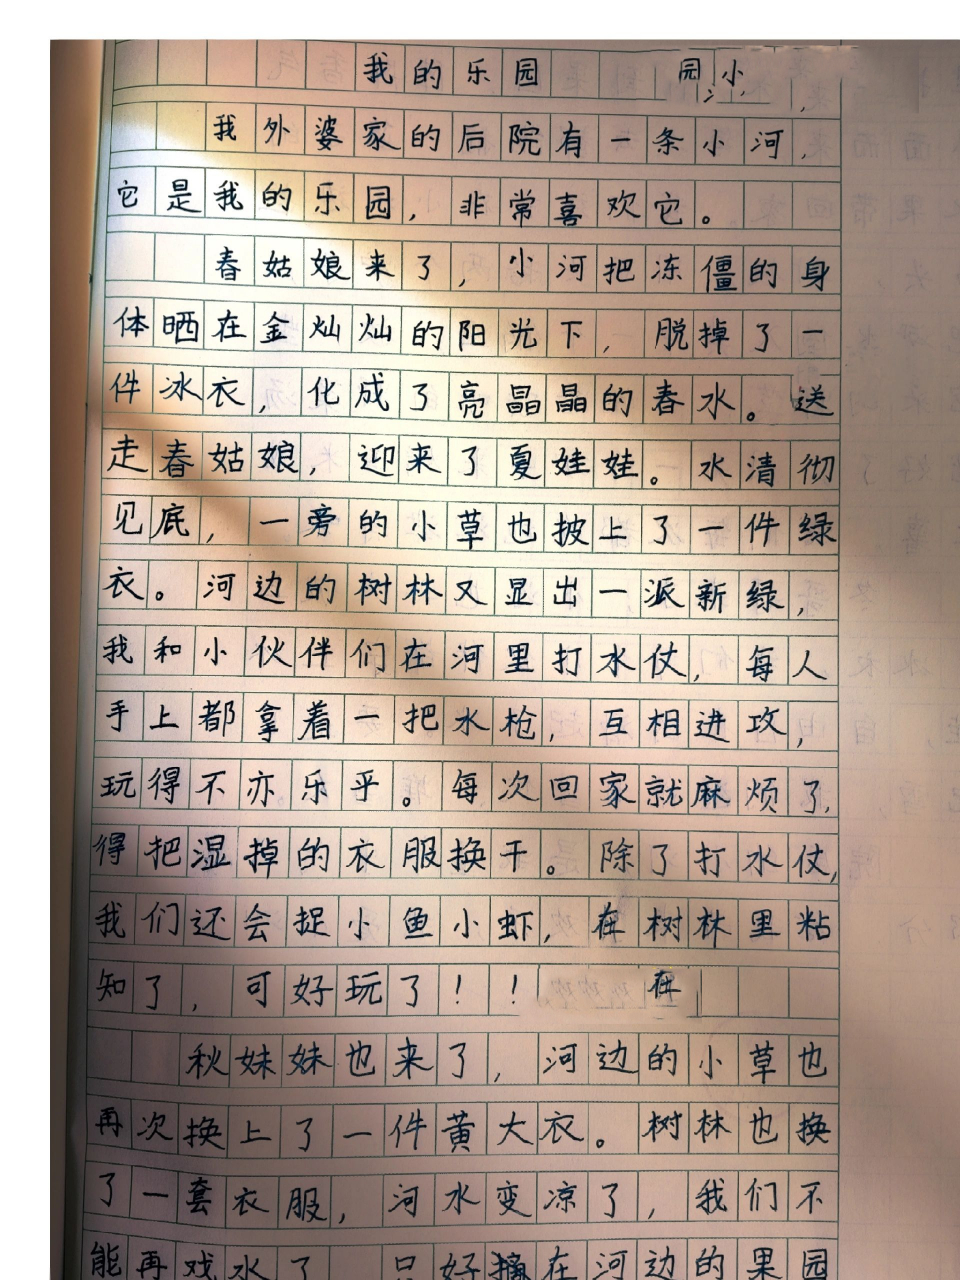 我的乐园 园小
我外婆家的后院有一条小河，
它是我的乐园，非常喜欢它。
春姑娘来了，小河把冻僵的身
体晒在金灿灿的阳光下，脱掉了一
件冰衣，化成了亮晶晶的春水。送
走春姑娘，迎来了夏娃娃。水清彻
见底，一旁的小草也披上了一件绿
衣。河边的树林又显出一派新绿，
我和小伙伴们在河里打水仗，每人
手上都拿着一把水枪，互相进攻，
玩得不亦乐乎。每次回家就麻烦了，
得把湿掉的衣服换干。除了打水仗，
我们还会捉小鱼小虾，在树林里粘
知了，可好玩了！！ 在
秋妹妹也来了，河边的小草也
再次换上了一件黄大衣。树林也换
了一套衣服，河水变凉了，我们不
能再戏水了 只好 在河边的果园